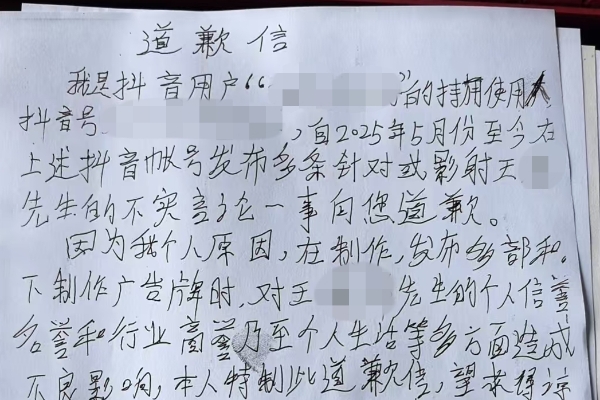 道歉信
我是抖音用户“ ”的持有使用人
抖音号 ，自2025年5月份至今在
上述抖音帐号发布多条针对或影射王
先生的不实言论一事向您道歉。
因为我个人原因，在制作，发布多部和
下制作广告牌时，对王 先生的个人信誉
名誉和行业商誉乃至个人生活等多方面造成
不良影响，本人特制此道歉信，望求得谅